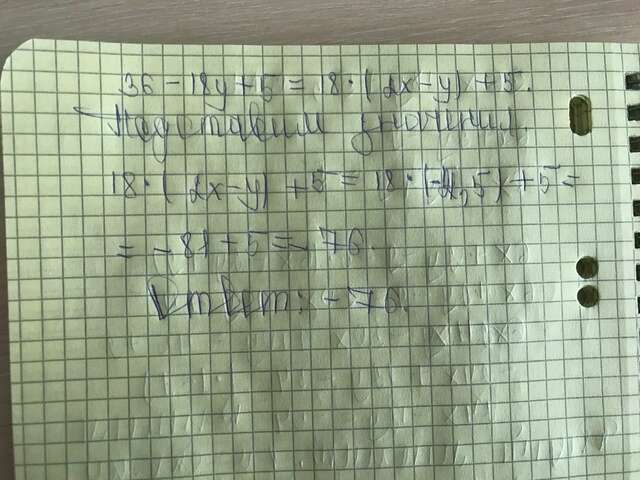 36 - 18y + 5 = 18·(2x-y) + 5.
Подставим значения
18·(2x-y) + 5 = 18·(-4,5) + 5 =
= -81 + 5 = -76.
Ответ: -76.